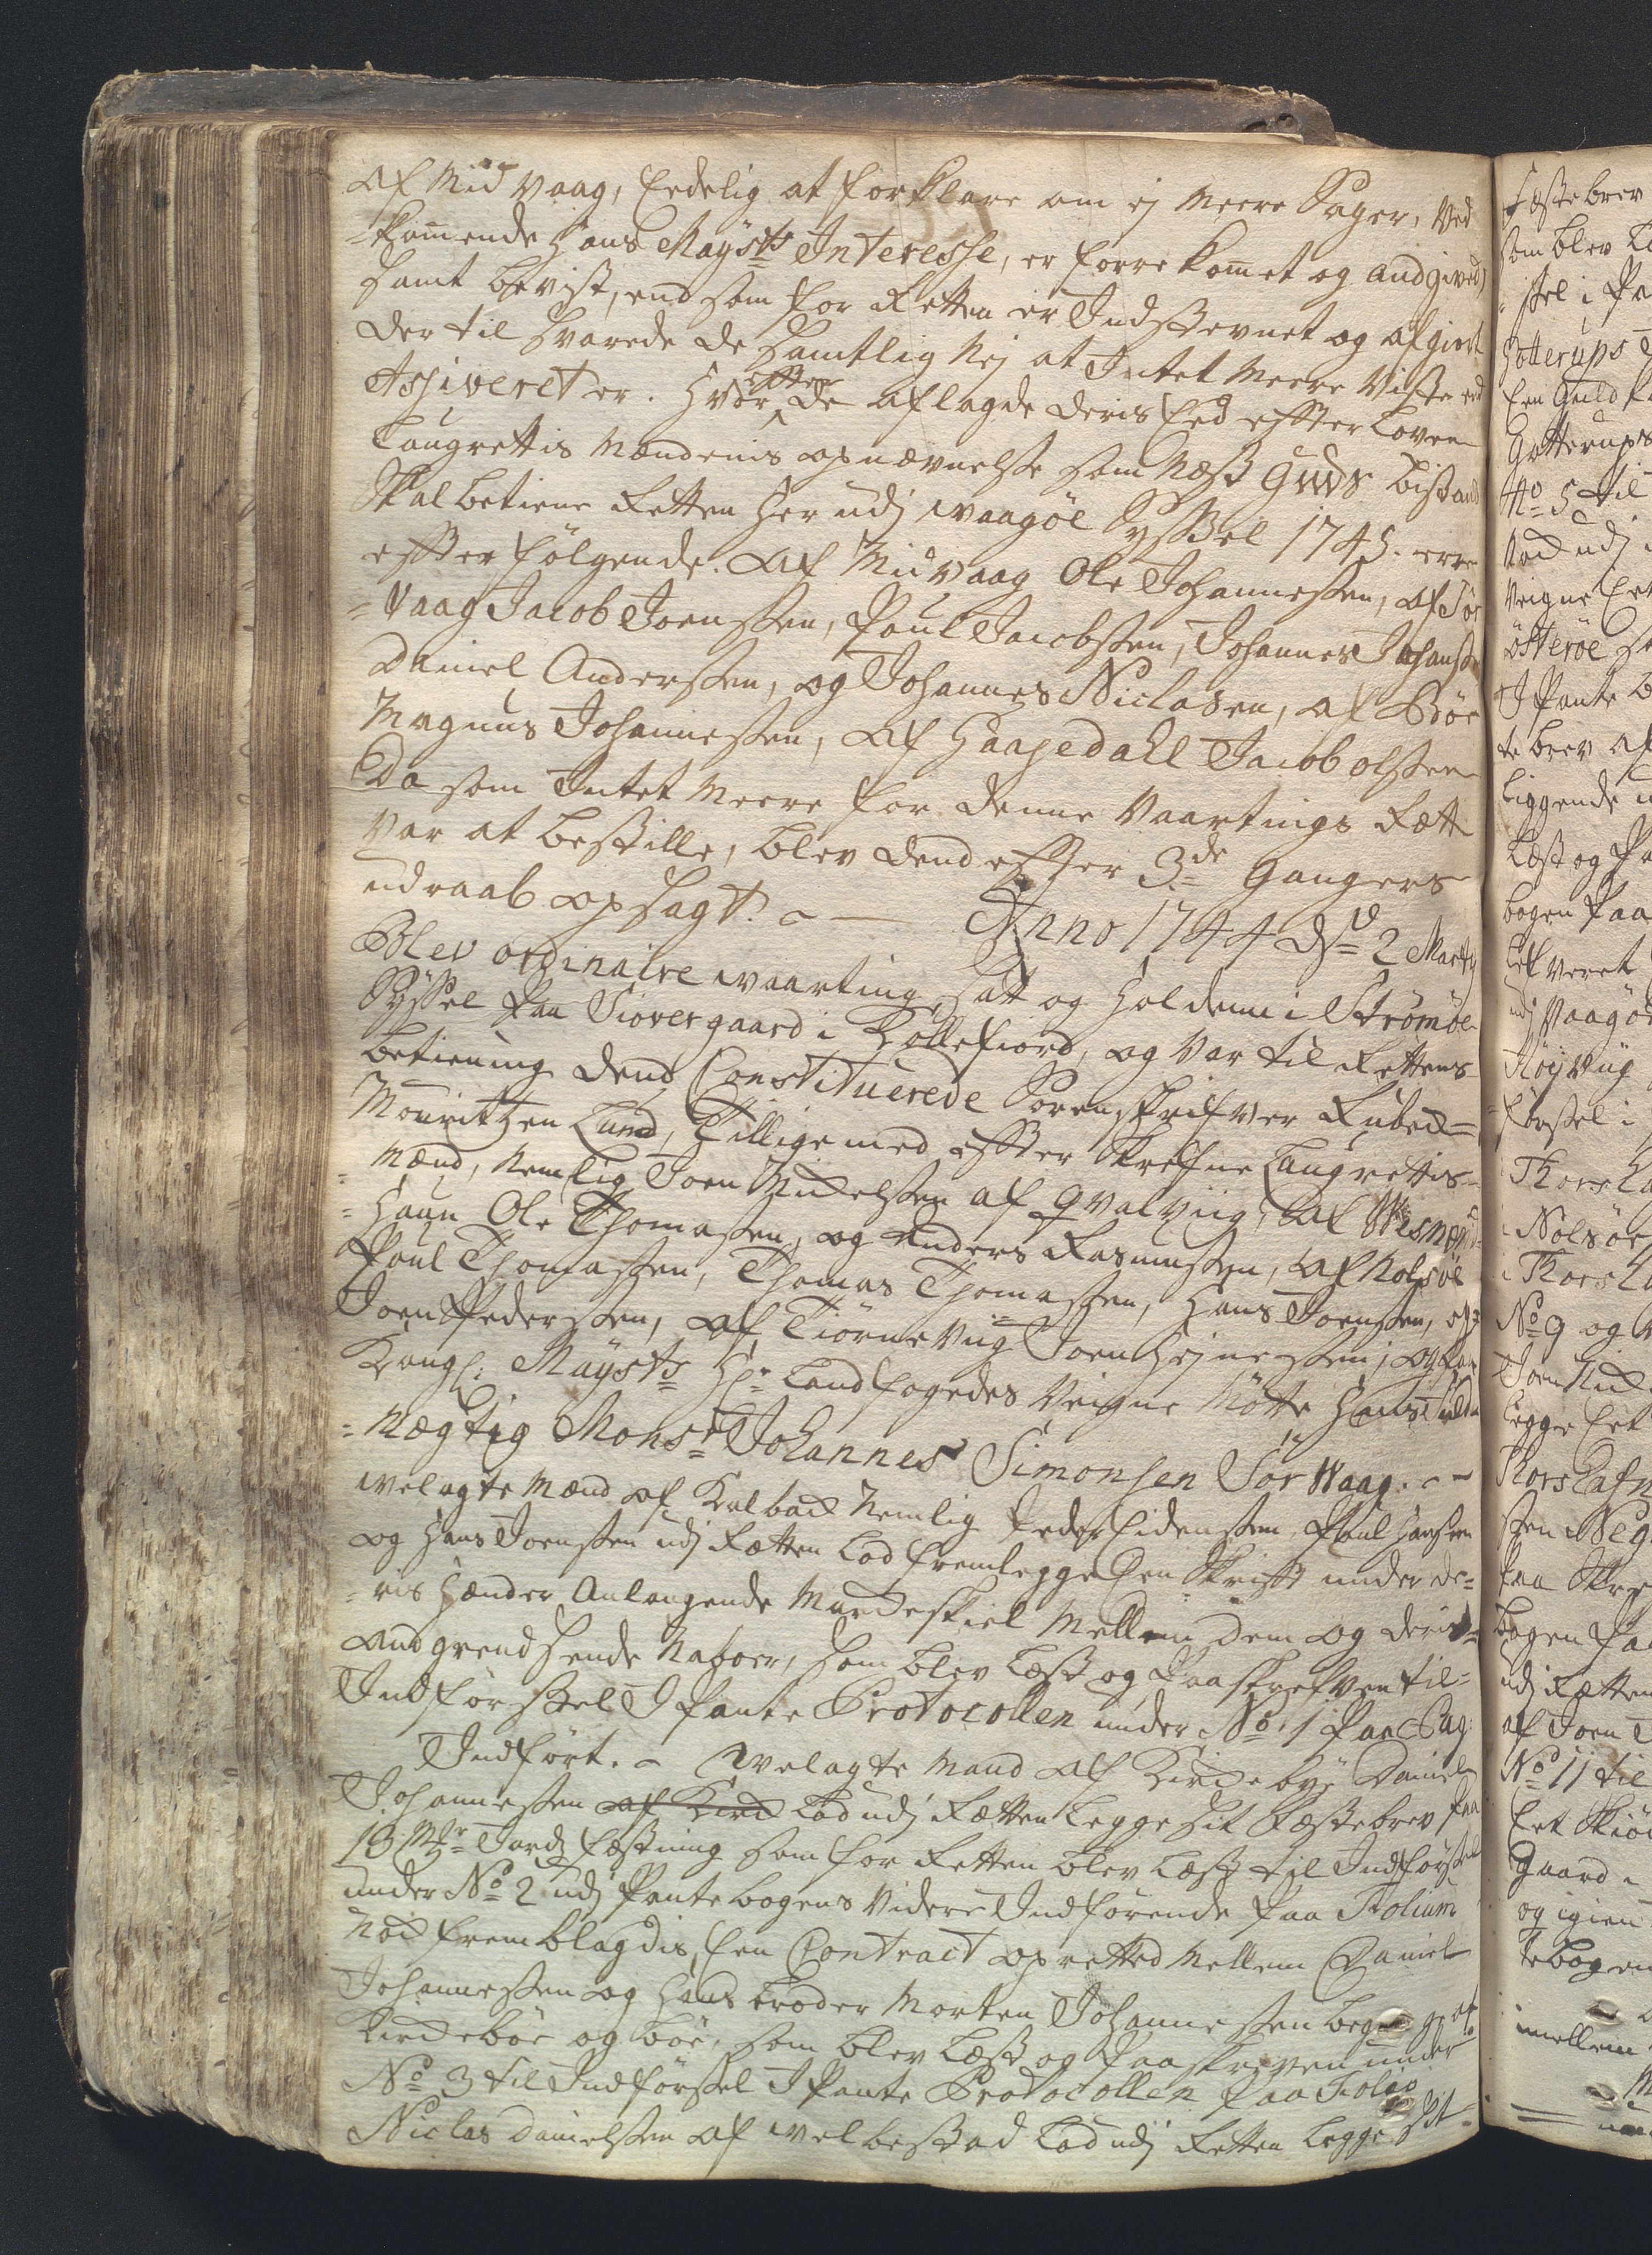 af Mid Vaag, Eedelig at forklare om ej meere Sager, ved
-kommende Hans Maysts Interesse, er forrekomet og andgived,
samt beviist, end som for Retten er Indstevnet og afgiort
der til svarede de samtlig Nej at Intet meere viste end
Assiveret er. Hvor efter de aflagde deris Eed effter Loven
Laugrettis Mændenis opnævnelse som næst Guds bistand
skal betiene Retten her udj Waagöe Syssel 1745. ere
effterfølgende. Af Midvaag Ole Johannessen, af Sør
-Vaag Jacob Joenssen, Poul Jacobssen, Johannes Johanssen
Daniel Anderssen, og Johannes Niclasen, af Böe
Magnus Johannessen, af Gaasedahl Jacob olssen
Da som Intet meere for denne Vaartings Rætt
var at bestille, blev dend effter 3de Gangers
udraab opsagt. -
Anno 1744 d 2 Marty
Blev ordinaire waarting satt og holden i Strömöe
Syssel paa Siovergaard i Kollefiord, og var til Rettens
betiening dend Constituerede Sorenskrifver Rubeck
Mouritzen Lund, Tillige med effterskrefne Laugrettis
-mænd, nemlig Joen Mickelssen af Qvalviig, af Westman
=haun Ole Thomassen, og Anders Rasmussen, af Nolsöe
Poul Thomassen, Thomas Thomassen, Hans Joenssen, og
Joen Pederssen, af Tiörneviig Joen Hejnessen; og paa
Kongl: Maysts Hr Landfogedes Veigne Mötte Hans Fuld
=mægtig Monsr Johannes Simonsen Sör Waag. -
Welagte Mænd af Kalbak nemlig Peder Eidenssen, Poul Hanssen
og Hans Joenssen udj Rætten lod fremlegge Een Skrift under de=
=ris Hænder Anlangende Markeskiel Mellem dem og deris
andgrendsende Naboer, som blev læst og paaskrefven til=
Indførssel I Pante Protocollen under No 1 paa Pag:
Indført. - Welagte Mand af Kirckebye Daniel
Johannessen af Kirck lod udj Rætten legge sit Fæstebrev paa
13 Mr Jords fæstning som for Retten blev læst til Indførssel
under No 2 udj Pantebogens Videre Indførende paa Folium
Nock fremblagdis Een Contract oprettet mellem Daniel
Johannessen og Hans broder Morten Johannessen begge af
Kirckeböe og böe, som blev læst og paaskreven under
No 3 til Indførssel I Pante Protocollen paa Folio
Niclas Danielssen af Welbestad lod udj Retten legge sit
Fæstebrev
som blev
ssel i
Gotterups
Een Guld
Gotterups
No 5 til
udj
Veigne Eet
österöe
I Pante
te brev af
liggende
læst og
bogen paa
lefveret
udj Vaagöe
Höyviig
førssel i
Thorsh
Nolsöe
Thorsh
No 9 og
Joen
legge Eet
Thorshafn
ssen
paa
bogen paa
udj Rætten
af Joen
No 11 til
Eet Skiöde
Gaard
og igien
tebogen
imellem